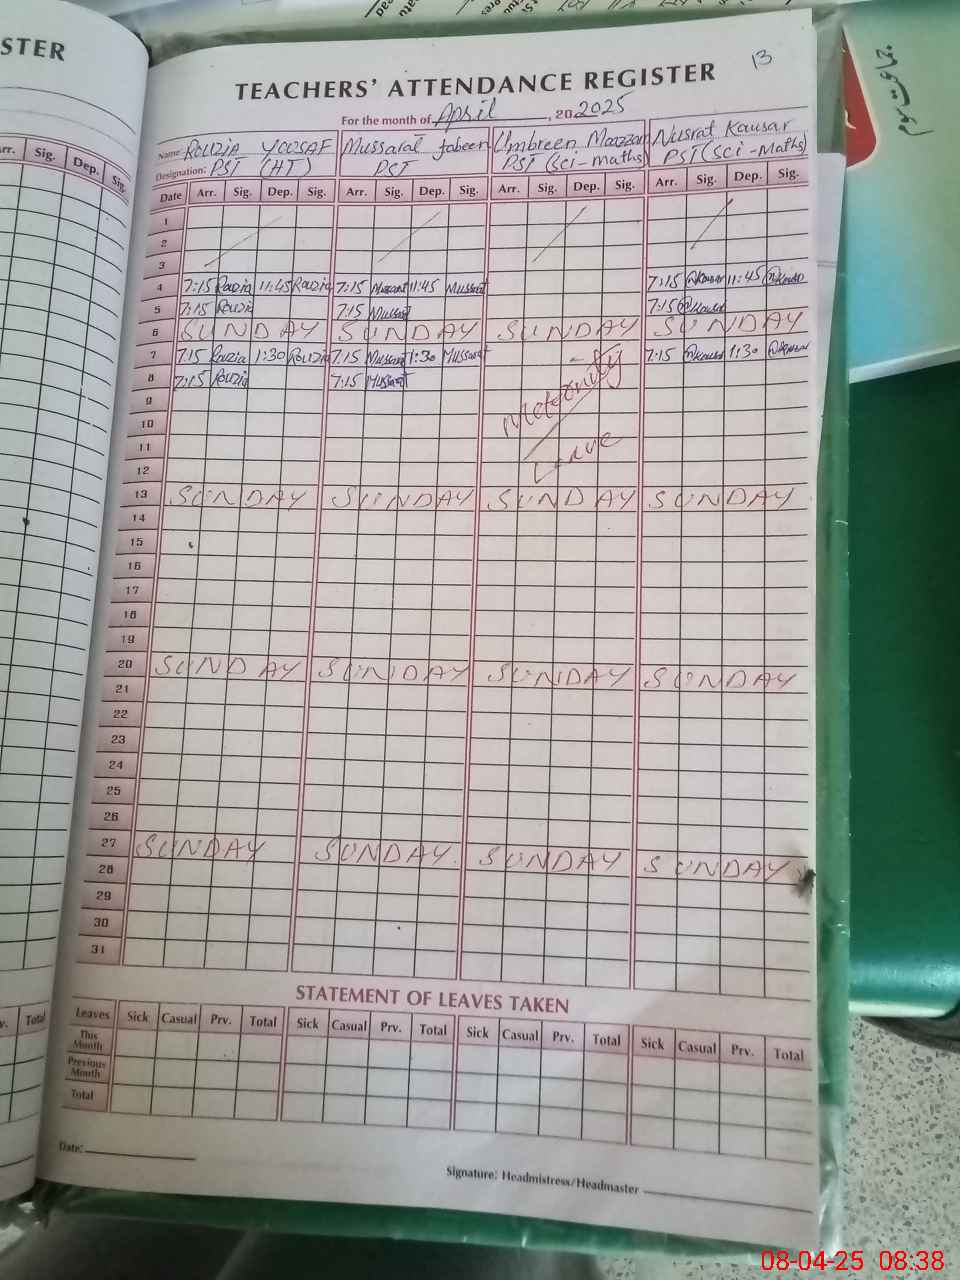 STER
rr. Sig. Dep. Sig.
v. Total
13
TEACHERS' ATTENDANCE REGISTER
For the month of April, 20 2025
Name: ROUZIA YOUSAF Mussarat Jabeen Umbreen Nusrat Kausar
Designation: PST (HT) PST PST (Sci-maths) PST (Sci-Maths)
Date Arr. Sig. Dep. Sig. Arr. Sig. Dep. Sig. Arr. Sig. Dep. Sig. Arr. Sig. Dep. Sig.
1
2
3
4 7:15 Rouzia 11:45 Rouzia 7:15 Mussarat 11:45 Mussarat 7:15 NKausar 11:45 NKausar
5 7:15 Rouzia 7:15 Mussarat 7:15 NKausar
6 SUNDAY SUNDAY SUNDAY SUNDAY
7 7:15 Rouzia 1:30 ROUZIA 7:15 Mussarat 1:30 Mussarat 7:15 NKausar 1:30 NKausar
8 7:15 Rouzia 7:15 Mussarat
9 Meternity
10
11 Leave
12
13 SUNDAY SUNDAY SUNDAY SUNDAY
14
15
16
17
18
19
20 SUNDAY SUNDAY SUNDAY SUNDAY
21
22
23
24
25
26
27 SUNDAY SUNDAY SUNDAY SUNDAY
28
29
30
31
STATEMENT OF LEAVES TAKEN
Leaves Sick Casual Prv. Total Sick Casual Prv. Total Sick Casual Prv. Total Sick Casual Prv. Total
This Month
Previous Month
Total
Date:
Signature: Headmistress/Headmaster
08-04-25 08:38